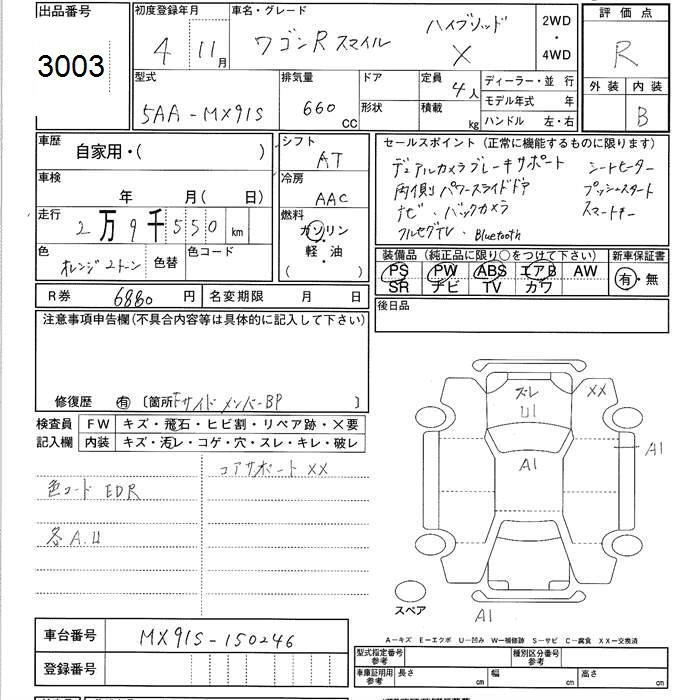 出品番号
3003
初度登録年月
4 11月
車名・グレード
ワゴンRスマイル ハイブリッド X
2WD
・
4WD
評価点
R
外装 内装
B
型式
5AA-MX91S
排気量
660 cc
ドア
形状
定員 4人
積載 kg
ディーラー・並 行
モデル年式 年
ハンドル 左・右
車歴
自家用・( )
車検
年 月( 日)
走行
2万9千550 km
色
オレンジ2トーン
色替
色コード
シフト
AT
冷房
AAC
燃料
ガソリン
軽・油
( )
セールスポイント (正常に機能するものに限ります)
デュアルカメラブレーキサポート シートヒーター
両側パワースライドドア プッシュスタート
ナビ・バックカメラ スマートキー
フルセグTV、Bluetooth
装備品 (純正品に限り○をつけて下さい)
新車保証書
PS PW ABS エアB AW
SR ナビ TV カワ
有・無
R券 6880 円
名変期限 月 日
後日品
注意事項申告欄(不具合内容等は具体的に記入して下さい)
修復歴 有 〔箇所 Fサイドメンバー BP 〕
検査員
記入欄
FW キズ・飛石・ヒビ割・リペア跡・×要
内装 キズ・汚レ・コゲ・穴・スレ・キレ・破レ
コアサポート XX
色コード EDR
各A.U
ズレ
U1
XX
A1
A1
A1
スペア
A-キズ E-エクボ U-凹み W-補修跡 S-サビ C-腐食 XX-交換済
車台番号
MX91S-150246
登録番号
型式指定番号
参考
種別区分番号
参考
車庫証明用
参考
長さ cm
幅 cm
高さ cm